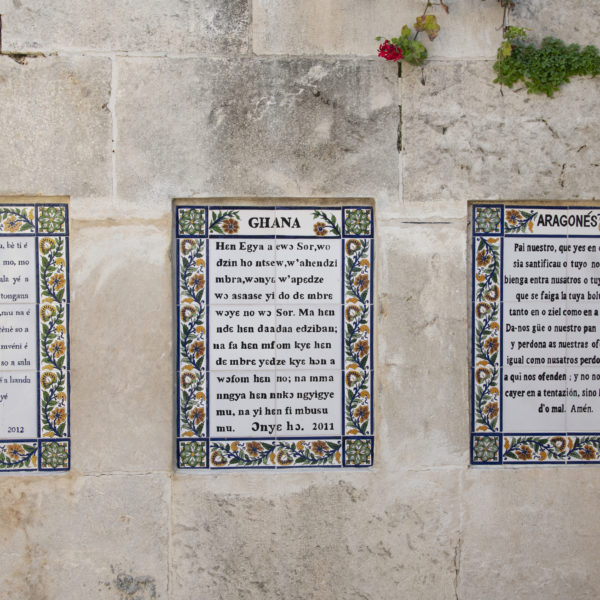 , bè ti é
mo, mo
ala yé n
tongana
,mu na é
tènè so a
mvéni é
so a sala
é a handa
yé
2012
GHANA
Hɛn Egya a ewɔ Sor,wo
dzin ho ntsew,w'ahendzi
mbra,wɔnyɛ w'apɛdze
wɔ asaase yi do dɛ mbrɛ
wɔyɛ no wɔ Sor. Ma hɛn
ndɛ hɛn daadaa edziban;
na fa hɛn mfom kyɛ hɛn
dɛ mbrɛ yɛdze kyɛ hɔn a
wɔfom hɛn no; na mma
nngya hɛn nnkɔ ngyigye
mu, na yi hɛn fi mbusu
mu. Ɔnyɛ hɔ. 2011
ARAGONÉS
Pai nuestro, que yes en o
sia santificau o tuyo no
bienga entra nusatros o tuy
que se faiga la tuya bolu
tanto en o ziel como en a
Da-nos güe o nuestro pan
y perdona as nuestras ofe
igual como nusatros perdo
a qui nos ofenden ; y no no
cayer en a tentazión, sino l
d'o mal. Amén.